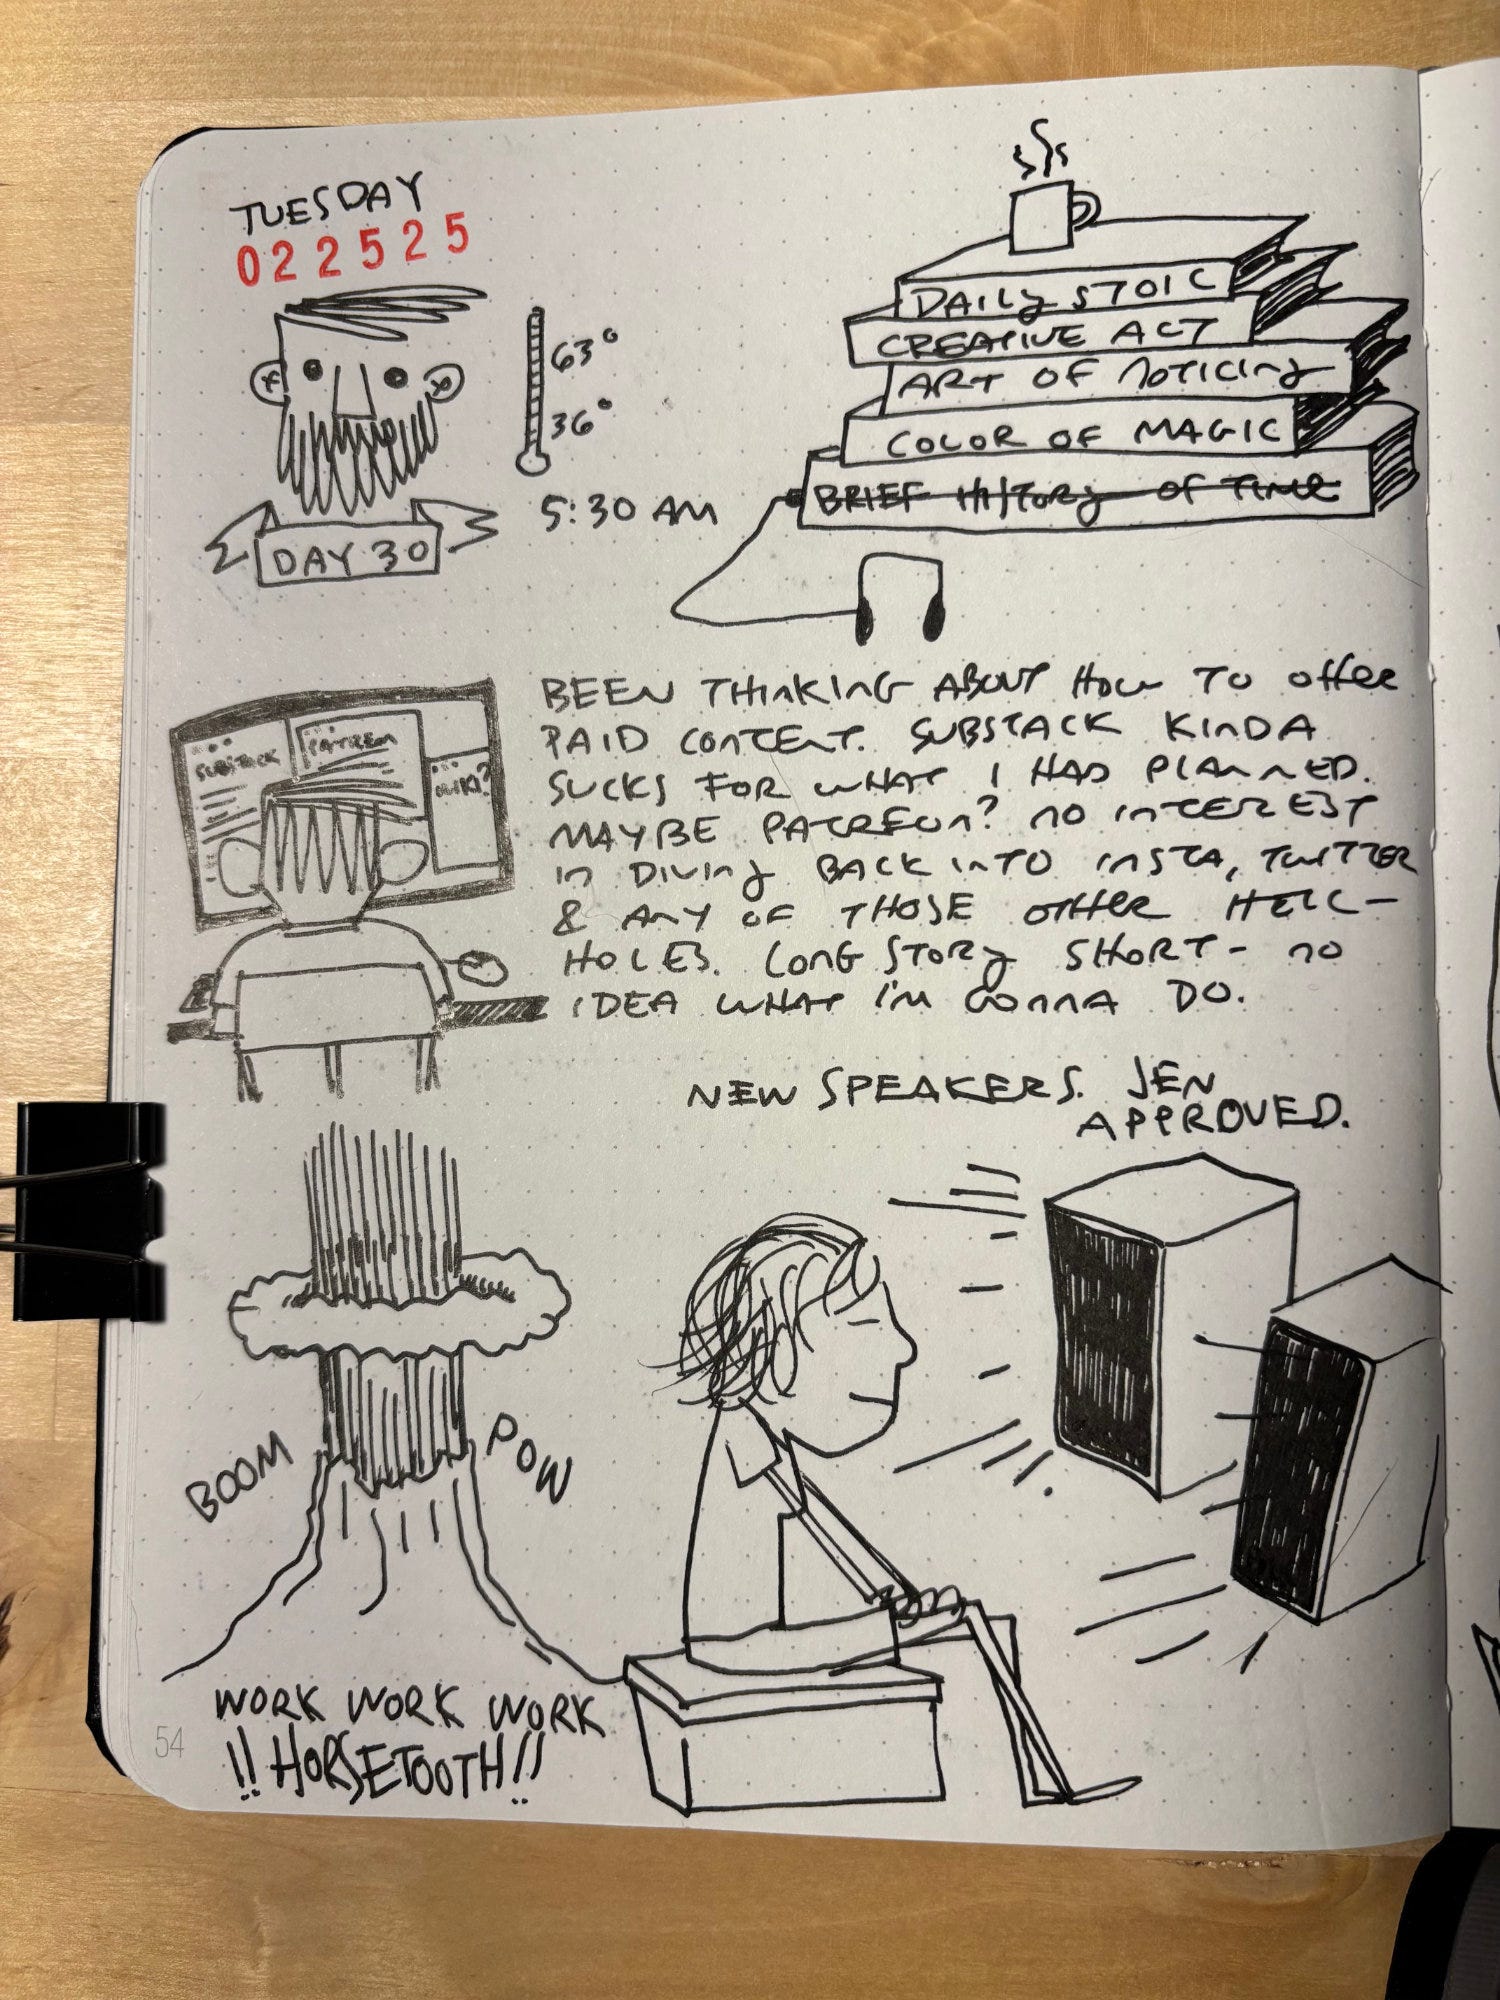 TUESDAY
022525
63°
36°
5:30 AM
DAY 30
DAILY STOIC
CREATIVE ACT
ART OF NOTICING
COLOR OF MAGIC
BRIEF HISTORY OF TIME
SUBSTACK
PATREON
BEEN THINKING ABOUT HOW TO OFFER
PAID CONTENT. SUBSTACK KINDA
SUCKS FOR WHAT I HAD PLANNED.
MAYBE PATREON? NO INTEREST
IN DIVING BACK INTO INSTA, TWITTER
& ANY OF THOSE OTHER HELL-
HOLES. LONG STORY SHORT - NO
IDEA WHAT I'M GONNA DO.
NEW SPEAKERS. JEN
APPROVED.
BOOM
POW
WORK WORK WORK
!!HORSETOOTH!!
54